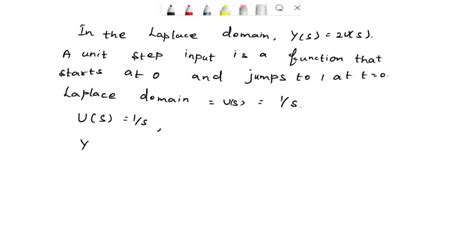 In the Laplace domain, Y(s) = 2U(s).
A unit step input is a function that
starts at 0 and jumps to 1 at t=0.
Laplace domain = U(s) = 1/s.
U(s) = 1/s,
Y